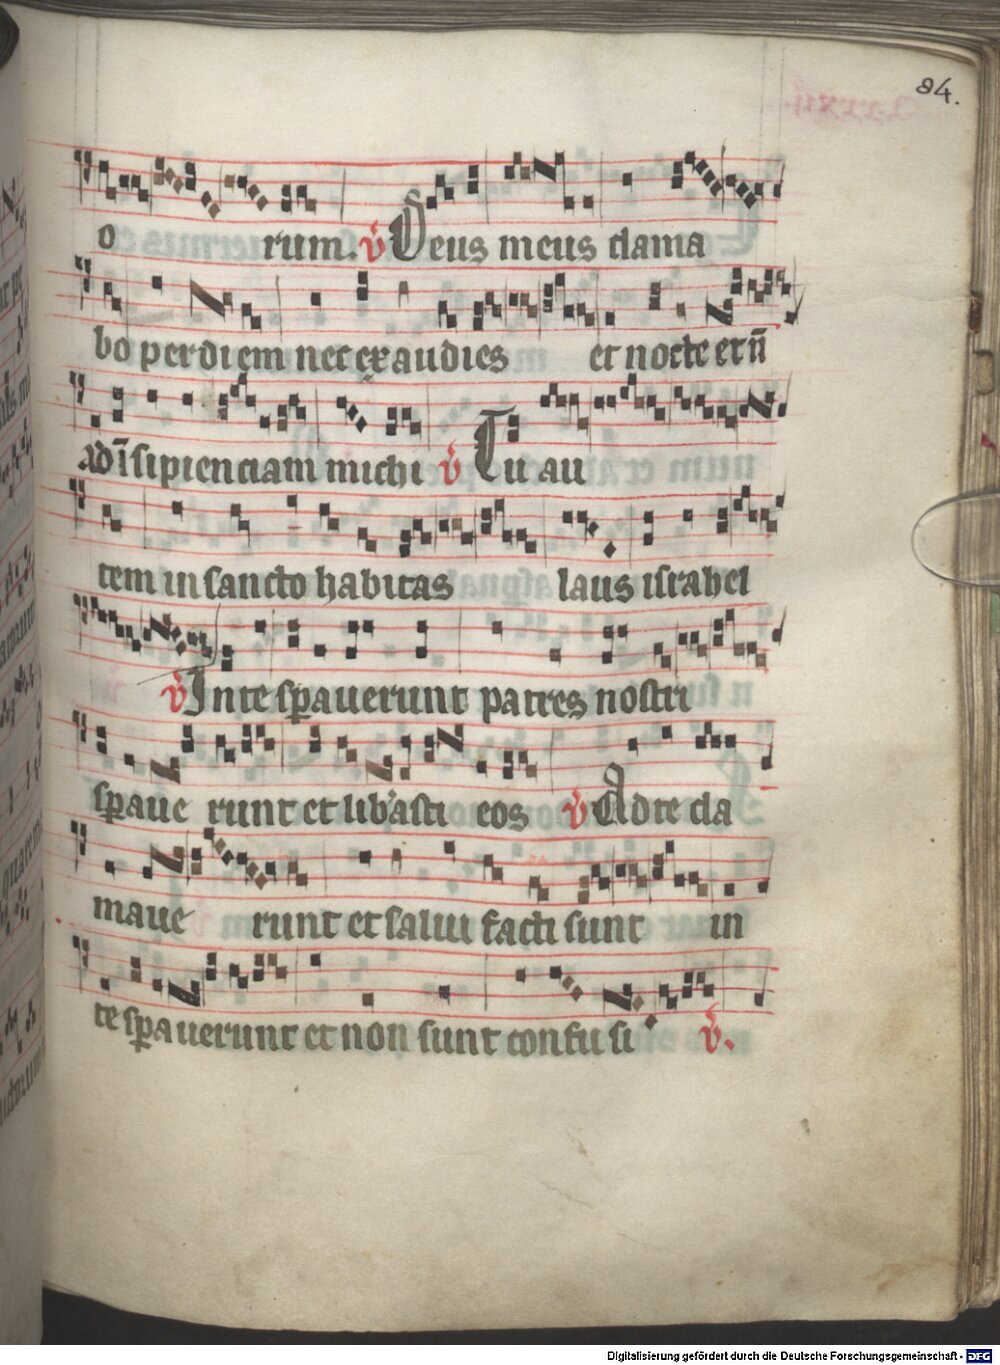 84.
o rum. v Deus meus clama
bo per diem nec exaudies et nocte et nō
ad īsipienciam michi v Tu au
tem in sancto habitas laus israhel
v In te spauerunt patres nostri
spaue runt et lib'asti eos v Ad te cla
maue runt et salui facti sunt in
te spauerunt et non sunt confu si v.
Digitalisierung gefördert durch die Deutsche Forschungsgemeinschaft - DFG